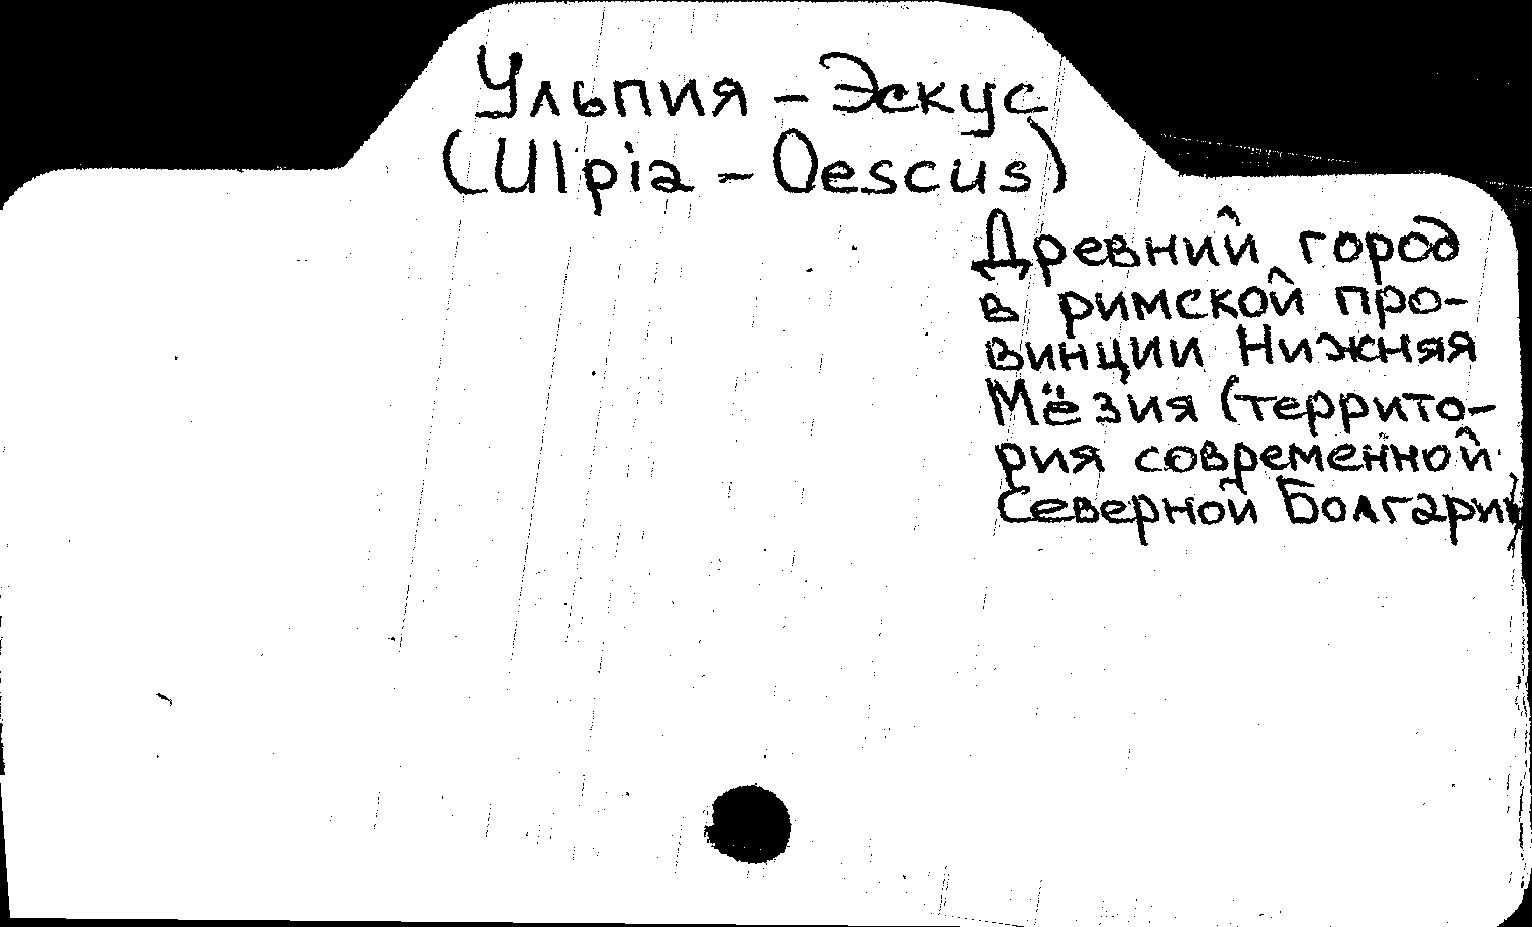 Ульпия - Эскус
(Ulpia - Oescus)
Древний город
в римской про-
винции Нижняя
Мёзия (террито-
рия современной
Северной Болгарии)